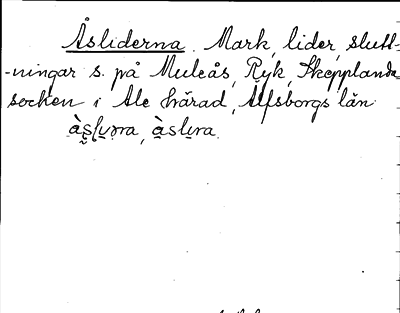 Åsliderna. Mark, lider, slutt-
-ningar s. på Muleås, Ryk, Skepplanda
socken i Ale härad, Älfsborgs län.